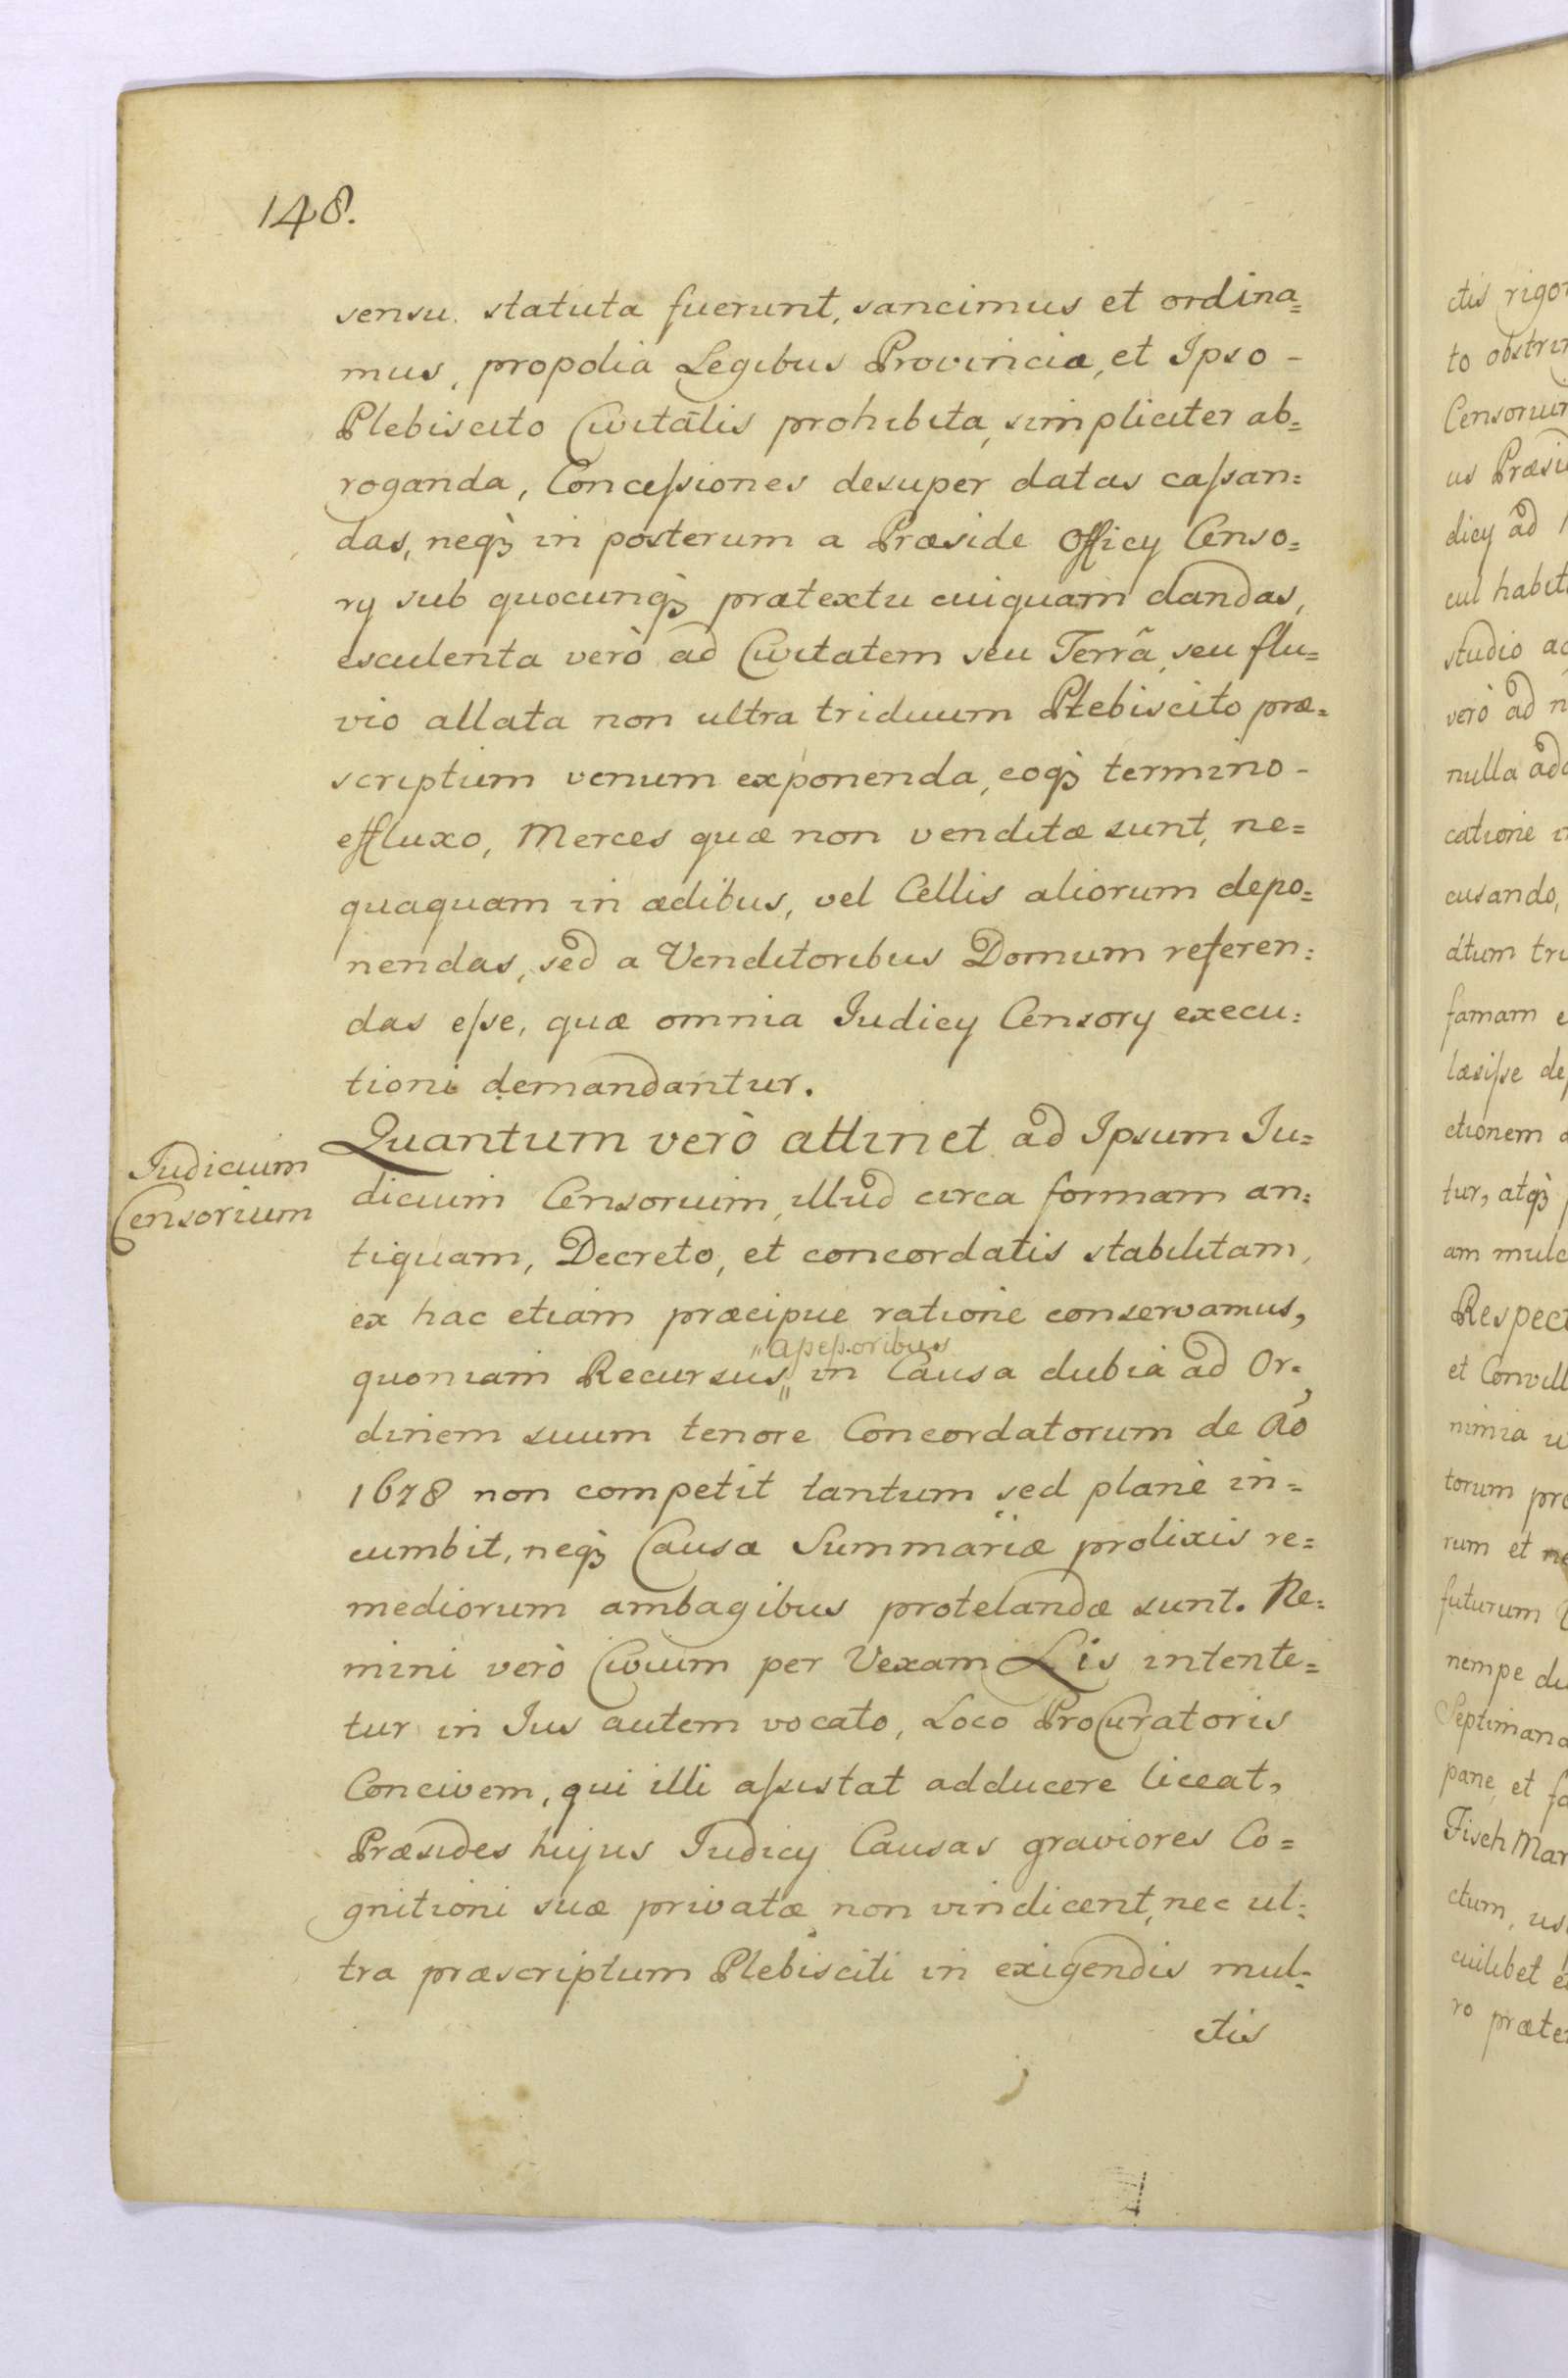 148.
sensu statuta fuerunt, sancimus et ordina=
mus, propolia Legibus Provinciæ, et Ipso -
Plebiscito Civitatis prohibita, simpliciter ab=
roganda, Conceſsiones desuper datas caſsan=
das, neqȝ in posterum a Præside Officy Censo=
ry sub quocunqȝ prætextu cuiquam dandas,
esculenta verò ad Civitatem seu Terrâ, seu flu=
vio allata non ultra triduum Plebiscito præ=
scriptum venum exponenda, eoqȝ termino -
effluxo, Merces quæ non venditæ sunt, ne=
quaquam in ædibus, vel Cellis aliorum depo=
nendas, sed a Venditoribus Domum referen=
das eſse, quæ omnia Iudicy Censory execu=
tioni demandantur.
Iudicium
Censorium
Quantum verò attinet ad Ipsum Iu=
dicium Censorium, illud circa formam an=
tiquam, Decreto, et concordatis stabilitam,
ex hac etiam præcipue ratione conservamus,
quoniam Recursus in Causa dubia ad Or=
dinem suum tenore Concordatorum de Ao
1678 non competit tantum sed planè in=
cumbit, neqȝ Causæ Summariæ prolixis re=
mediorum ambagibus protelandæ sunt. Ne=
mini verò Civium per Vexam Lis intente=
tur in Ius autem vocato, Loco Procuratoris
Concivem, qui illi aſsistat adducere liceat,
Præsides hujus Iudicy Causas graviores Co=
gnitioni suæ privatæ non vindicent, nec ul=
tra præscriptum Plebisciti in exigendis mul=
ctis
ctis
to
Censorium
dicy ad
studio
verò ad
nulla
cusando,
famam
læsiſse
ctionem
tur, atqȝ
am
et
nimia
torum
rum et
futurum
nempe
pane, et
Fisch Mar
ctum,
cuilibet
ro